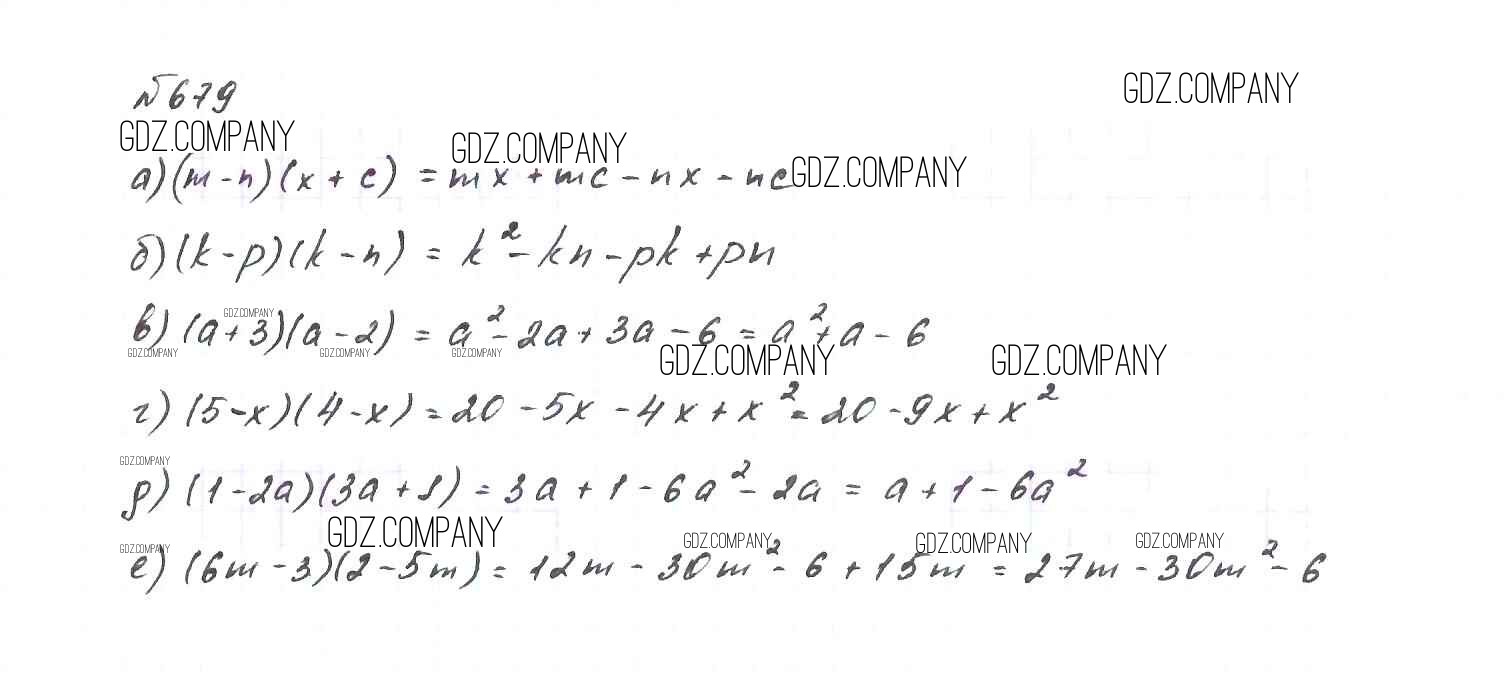 №679
GDZ.COMPANY
GDZ.COMPANY
GDZ.COMPANY
GDZ.COMPANY
а) (m - n)(x + c) = mx + mc - nx - nc
б) (k - p)(k - n) = k² - kn - pk + pn
GDZ.COMPANY
в) (a + 3)(a - 2) = a² - 2a + 3a - 6 = a² + a - 6
GDZ.COMPANY GDZ.COMPANY GDZ.COMPANY GDZ.COMPANY GDZ.COMPANY
г) (5 - x)(4 - x) = 20 - 5x - 4x + x² = 20 - 9x + x²
GDZ.COMPANY
д) (1 - 2a)(3a + 1) = 3a + 1 - 6a² - 2a = a + 1 - 6a²
GDZ.COMPANY GDZ.COMPANY GDZ.COMPANY GDZ.COMPANY GDZ.COMPANY
е) (6m - 3)(2 - 5m) = 12m - 30m² - 6 + 15m = 27m - 30m² - 6